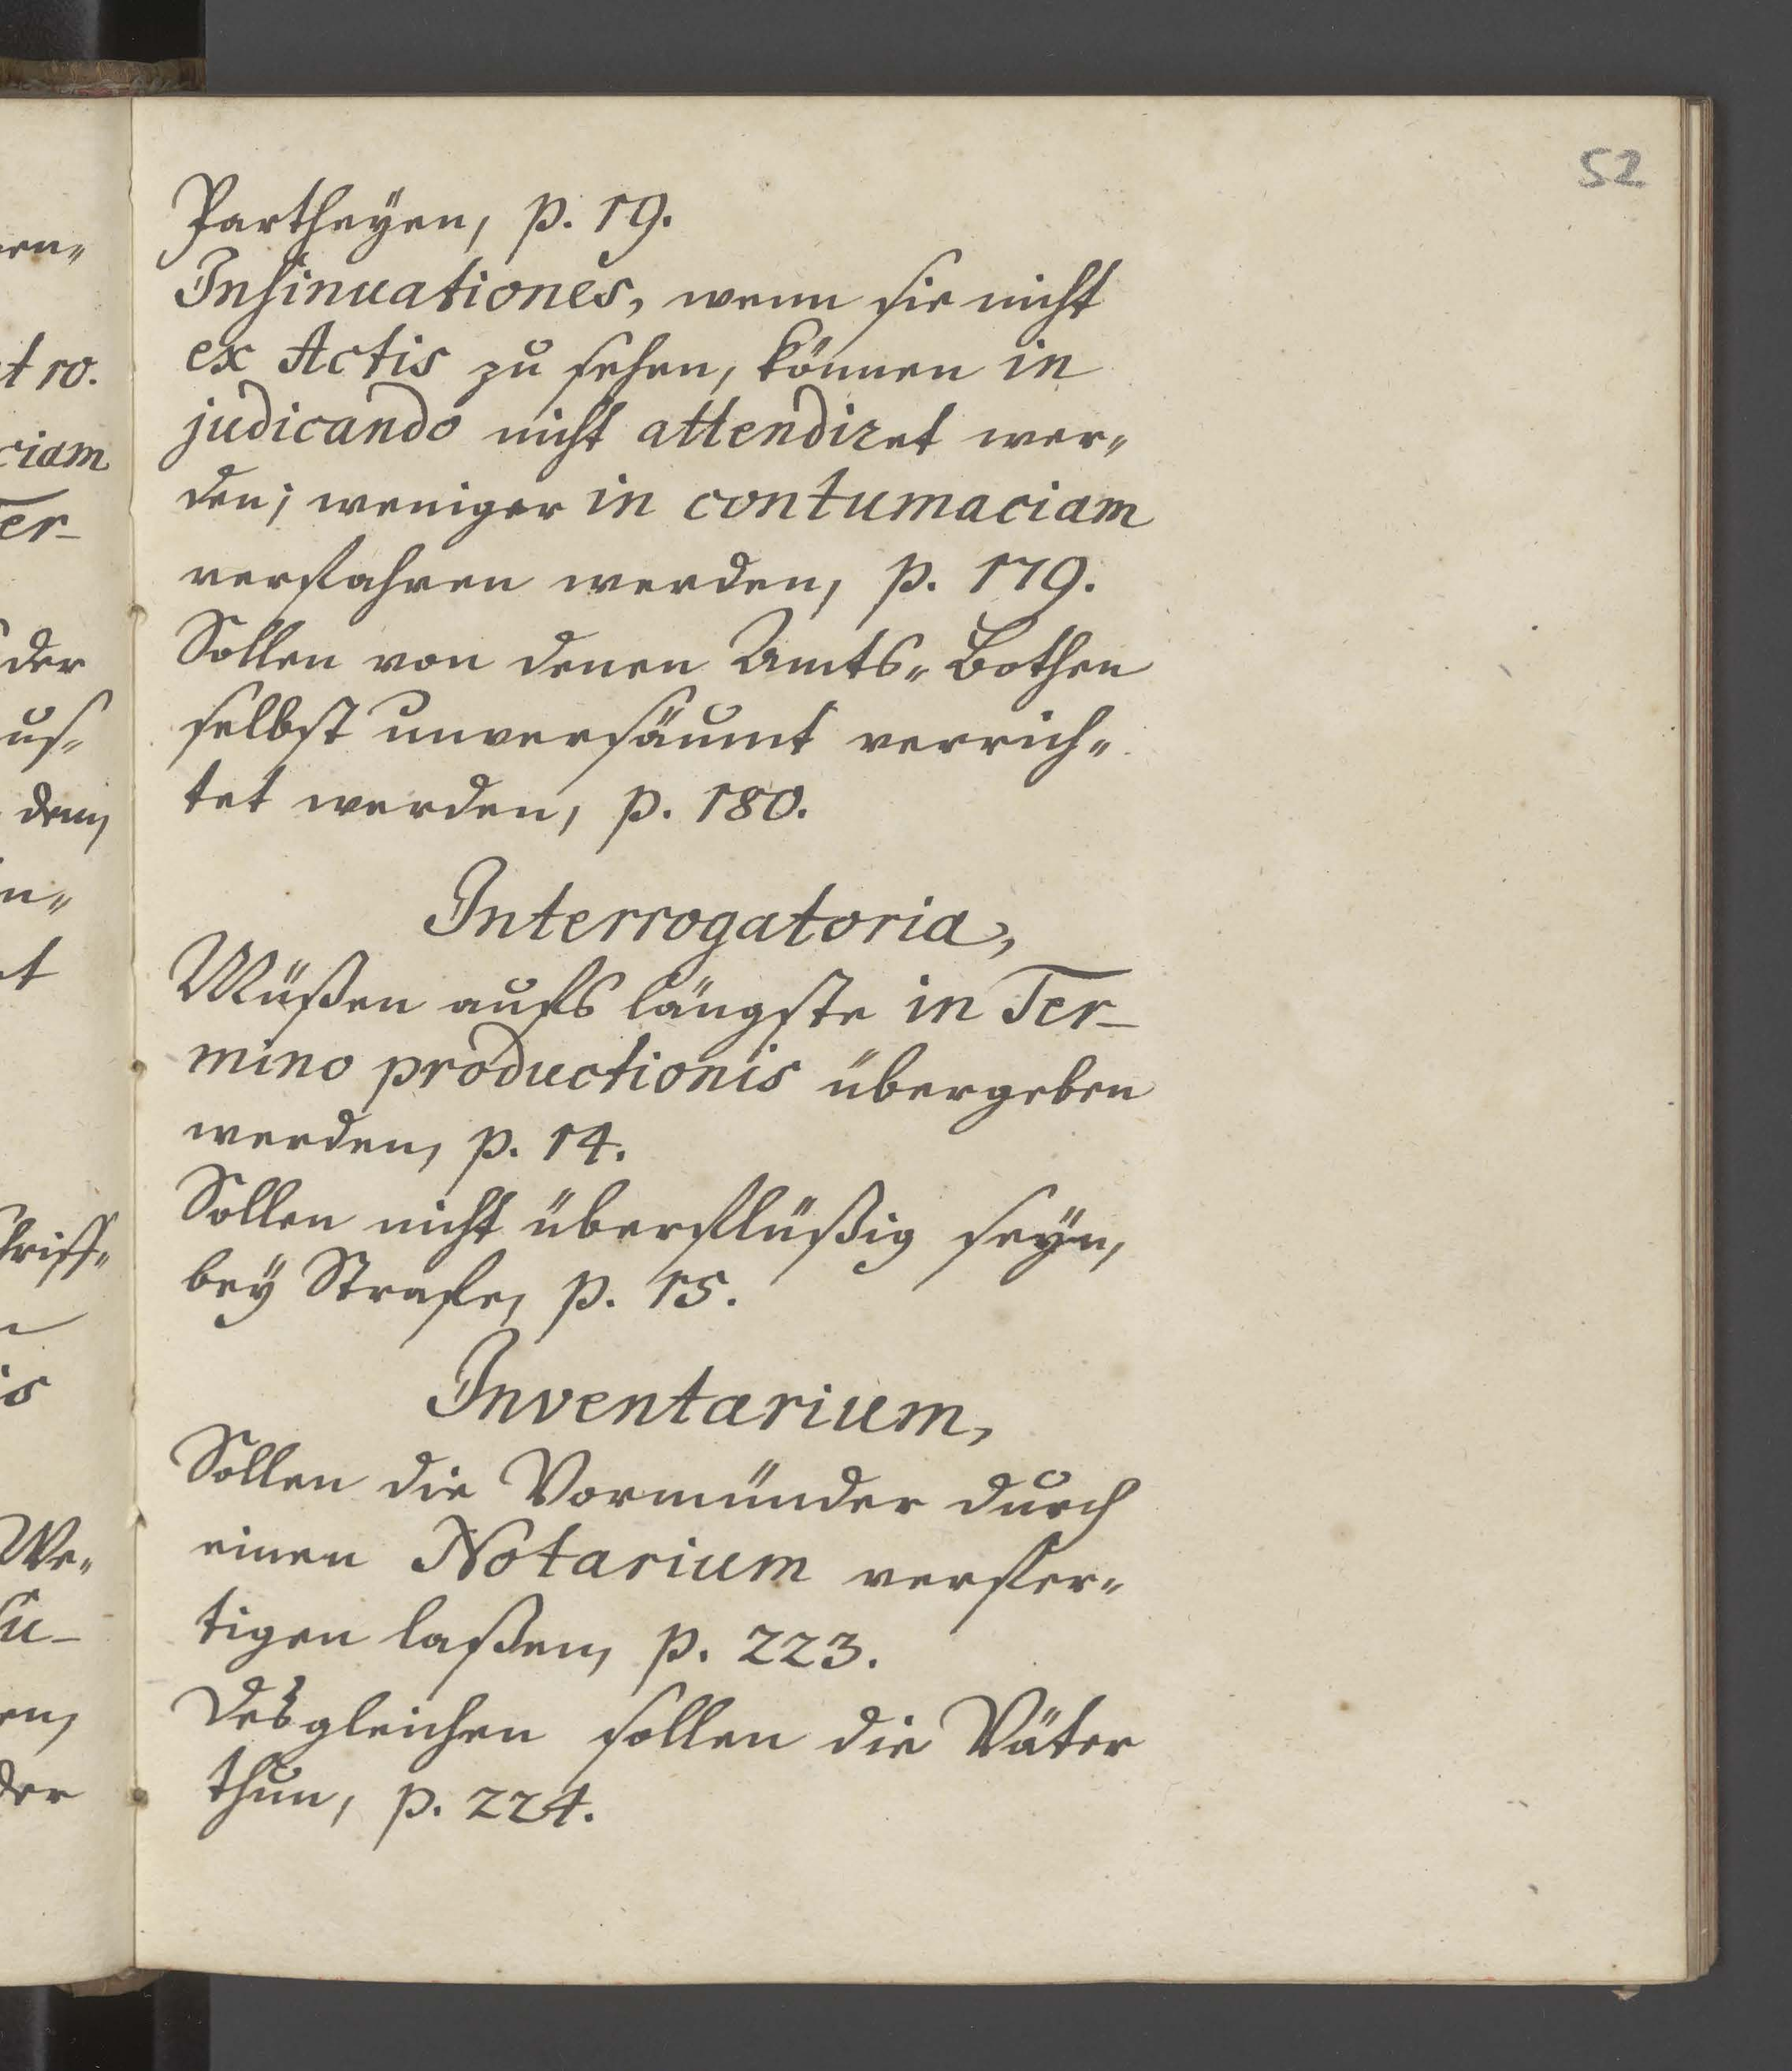 52
Partheyen, p. 19.
Insinuationes, wenn sie nicht
ex Actis zu sehen, können in
judicando nicht attendiret wer„
den; weniger in contumaciam
verfahren werden, p. 179.
Sollen von denen Amts„Bothen
selbst unversäumt verrich„
tet werden, p. 180.
Interrogatoria,
Müßen aufs längste in Ter-
mino productionis übergeben
werden, p. 14.
Sollen nicht überflüßig seyn,
bey Strafe, p. 15.
Inventarium,
Sollen die Vormünder durch
einen Notarium verfer„
tigen laßen, p. 223.
Desgleichen sollen die Väter
thun, p. 224.